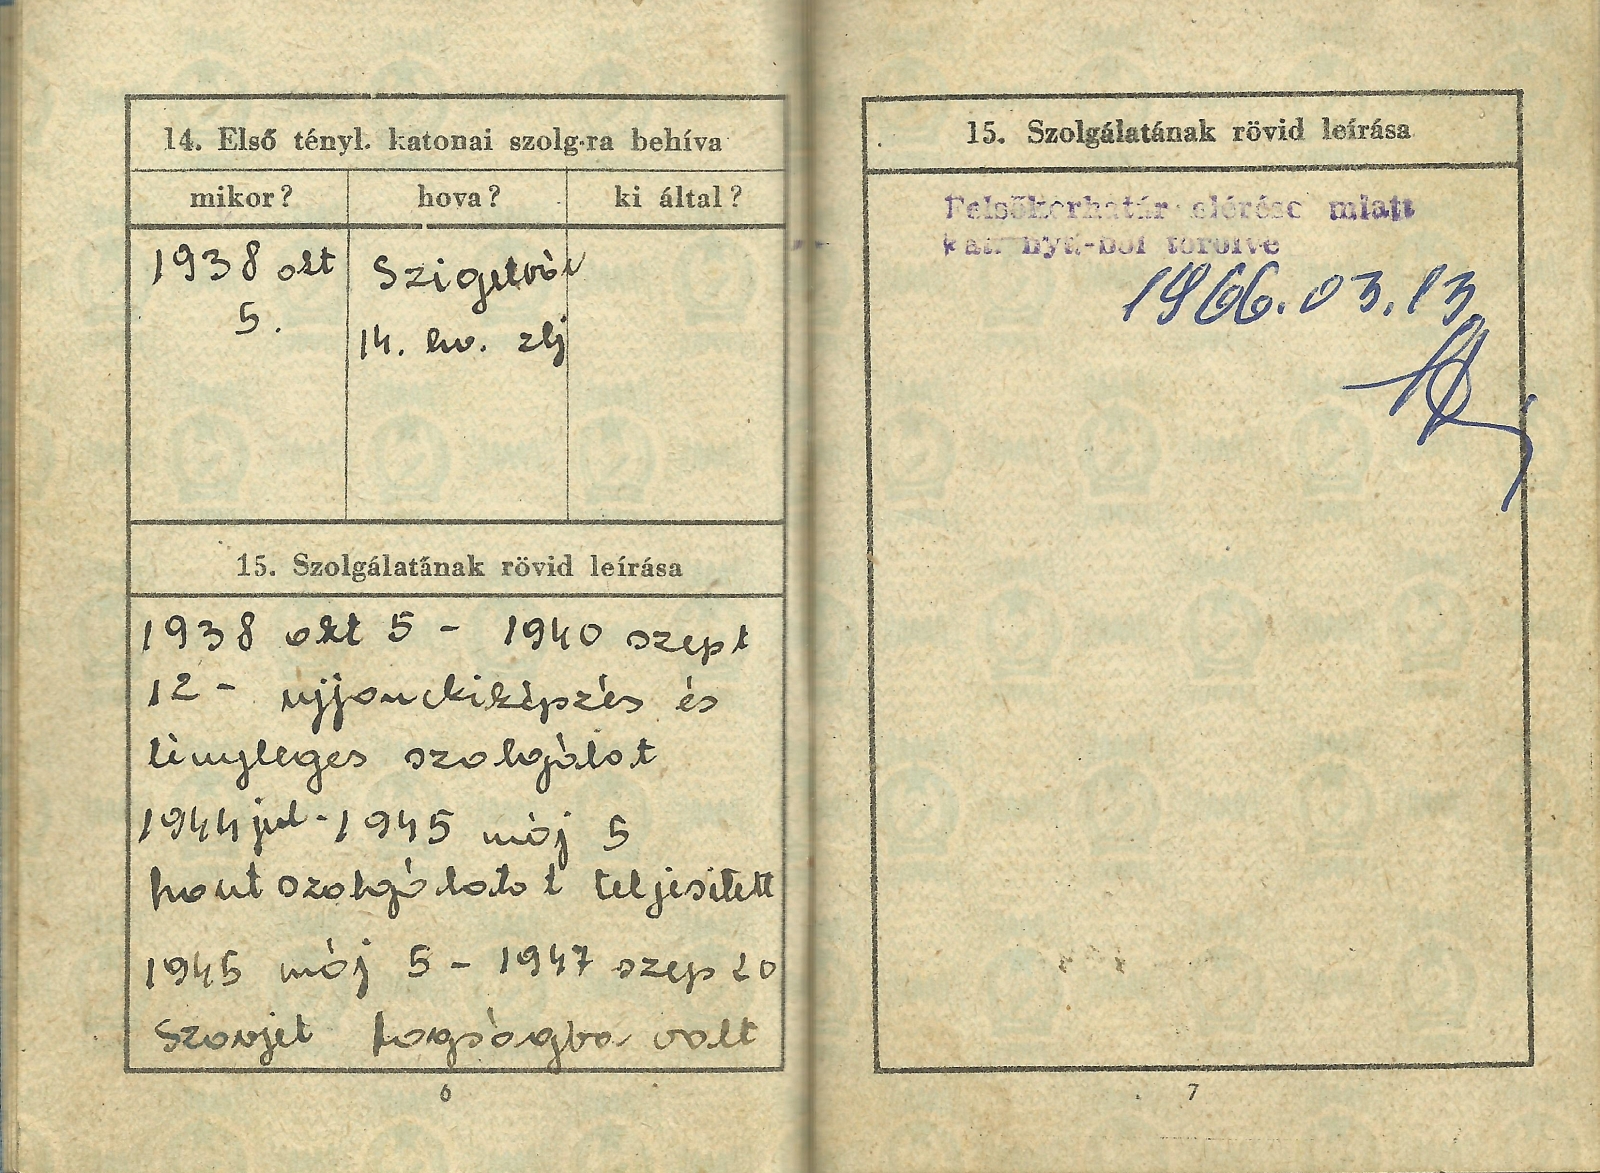 14. Első tényl. katonai szolg-ra behíva
mikor? hova? ki által?
1938 okt Szigetvár
5. 14. hv. zlj
15. Szolgálatának rövid leírása
1938 okt 5 - 1940 szept
12 - ujjonckiképzés és
tényleges szolgálat
1944 jul - 1945 máj 5
hontszolgálatot teljesitett
1945 máj 5 - 1947 szep 20
Szovjet fogságba volt
6
15. Szolgálatának rövid leírása
Felsőkorhatár elérése miatt
kat. nyt.-ból törölve
1966.03.13
7